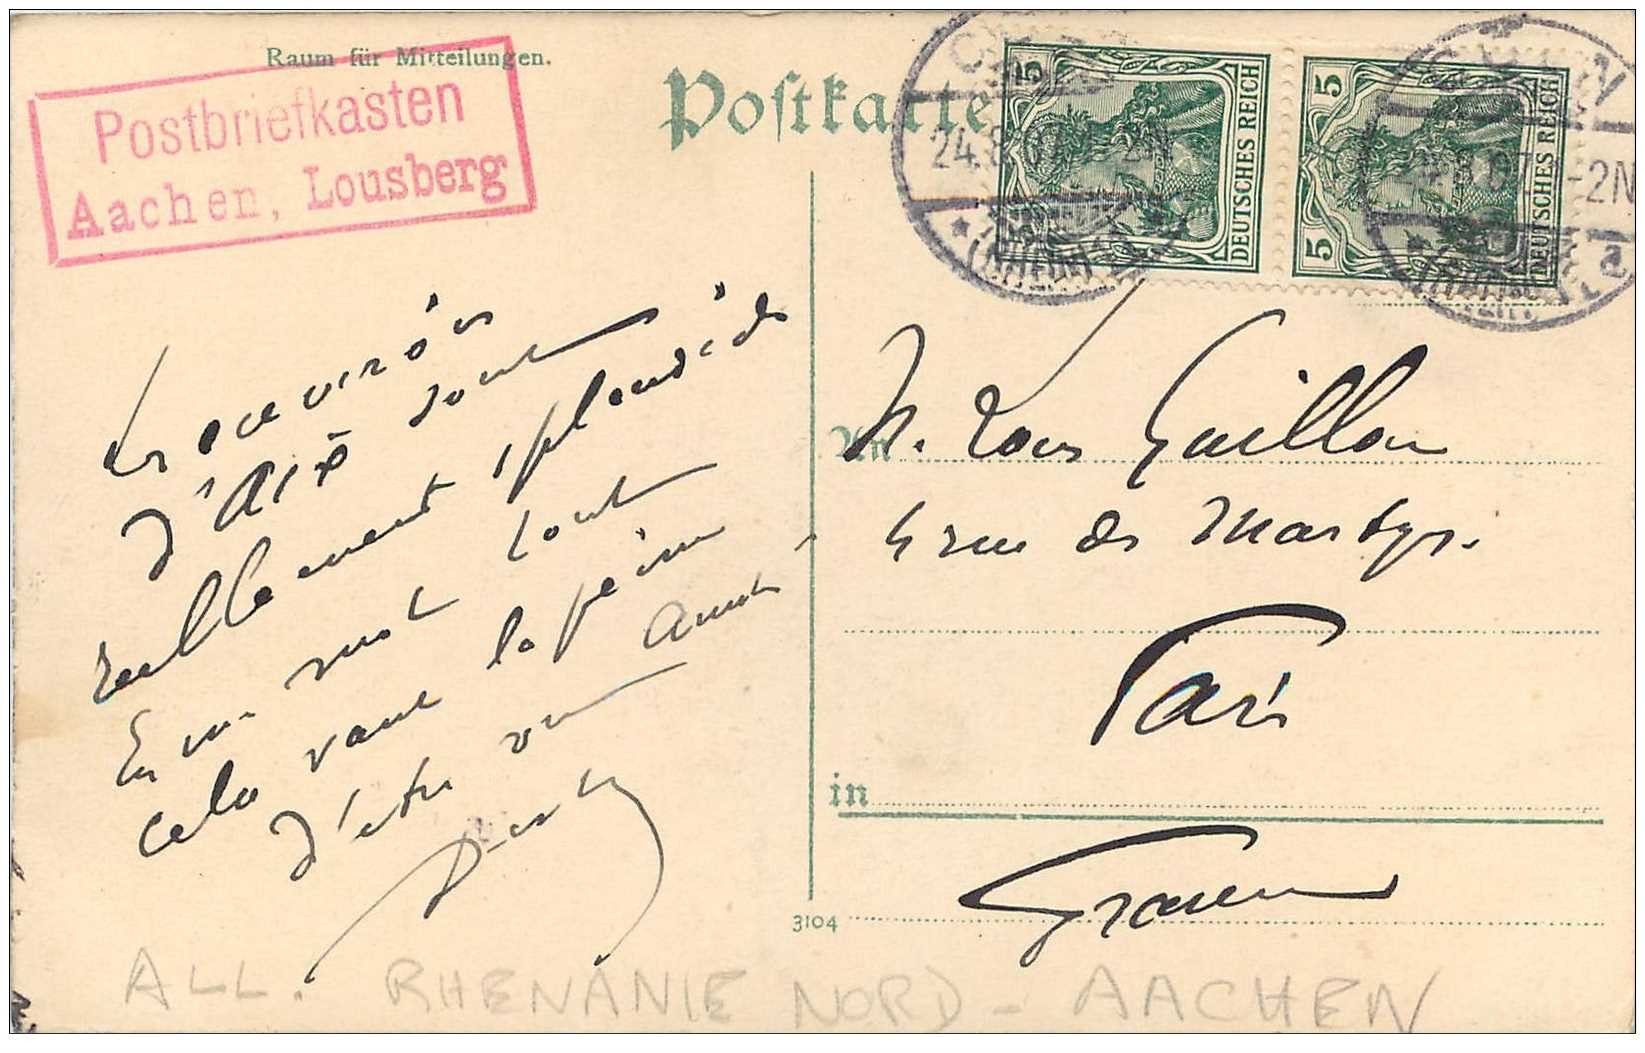 Raum für Mitteilungen.
Postbriefkasten
Aachen, Lousberg
Postkarte
5 DEUTSCHES REICH
5 5 DEUTSCHES REICH
24.8.07 -2N
CÖLN
8.07 -2N
(RHEIN)
a
Les environs
d'Aix sont
réellement splendides
En un mot tout
cela vaut la peine
d'être vu Amitiés
An M. Louis Guillon
4 rue des Martyrs.
Paris
in
3104
ALL. RHENANIE NORD - AACHEN